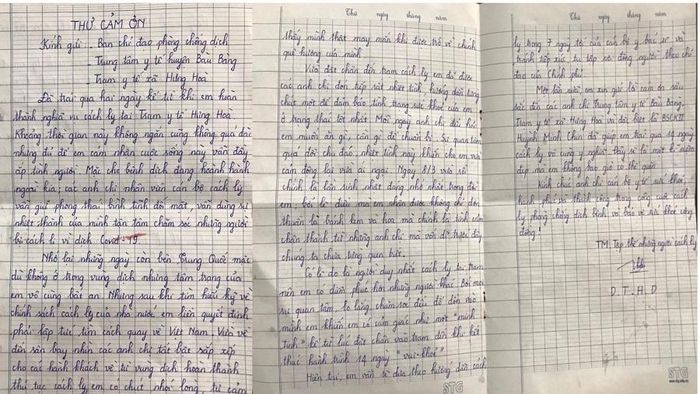 THƯ CẢM ƠN
Kính gửi: - Ban chỉ đạo phòng chống dịch
- Trung tâm y tế huyện Bàu Bàng
- Trạm y tế xã Hưng Hoà
Đã trải qua hai ngày kể từ khi em hoàn
thành nghĩa vụ cách ly tại Trạm y tế Hưng Hoà
Khoảng thời gian này không ngắn cũng không quá dài
nhưng đủ để em cảm nhận cuộc sống này vẫn đầy
ắp tình người. Mặc cho bệnh dịch đang hoành hành
ngoài kia, các anh chị nhân viên cán bộ cách ly
vẫn giữ phong thái bình tĩnh đối mặt, vẫn dùng sự
nhiệt thành của mình tận tâm chăm sóc những người
bị cách li vì dịch Covid-19.
Nhớ lại những ngày còn bên Trung Quốc mặc
dù không ở trong vùng dịch nhưng tâm trạng của
em vô cùng bất an. Nhưng sau khi tìm hiểu kỹ về
chính sách cách ly của nhà nước em liền quyết định
phải lập tức tìm cách quay về Việt Nam. Vừa về
đến sân bay nhìn các anh chị tất bật sắp xếp
cho các hành khách về từ vùng dịch hoàn thành
thủ tục cách ly em có chút nhói lòng, tự cảm
Thứ ngày tháng năm
thấy mình thật may mắn khi được trở về chính
quê hương của mình.
Vừa đặt chân đến trạm cách ly em đã được
các anh chị đón tiếp rất nhiệt tình, hướng dẫn từng
chút một để đảm bảo tình trạng sức khoẻ của em
ở trạng thái tốt nhất. Mỗi ngày anh chị đều hỏi
em muốn ăn gì, cần gì để chuẩn bị. Sự quan tâm
quá đỗi chu đáo, nhiệt tình này khiến cho em vừa
cảm động lại vừa ái ngại. Ngày 8/3 vừa rồi
chính là lần sinh nhật đáng nhớ nhất trong đời
em, bởi lẽ điều mà em nhận được không chỉ đơn
thuần là bánh kem và hoa mà chính là tình cảm
chân thành từ những anh chị mà vốn dĩ trước đây
chúng ta chưa từng quen biết.
Có lẽ do là người duy nhất cách ly tại trạm
nên em có diễm phúc hơn những người khác. Bởi mọi
sự quan tâm, lo lắng, chăm sóc đều đổ dồn vào
mình em khiến em có cảm giác như một "minh
tinh" kể từ lúc đặt chân vào trạm đến khi kết
thúc hành trình 14 ngày "vui - khoẻ".
Hiện tại, em vẫn sẽ dựa theo hướng dẫn cách
STG
Thứ ngày tháng năm
ly trong 7 ngày tới của cán bộ y bác sĩ và
tránh tiếp xúc tụ tập nơi đông người theo chỉ
đạo của Chính phủ.
Một lần nữa em xin gửi lời cảm ơn sâu
sắc đến các anh chị Trung tâm y tế Bàu Bàng,
Trạm y tế xã Hưng Hoà và đặc biệt là BSCKII
Huỳnh Minh Chín đã giúp em trải qua 14 ngày
cách ly vô cùng ý nghĩa. Đây sẽ là một kỉ niệm
đẹp mà em không bao giờ có thể quên.
Kính chúc anh chị cán bộ y tế sức khoẻ,
hạnh phúc và thành công trong công cuộc cách
ly, phòng chống dịch bệnh và bảo vệ sức khoẻ cộng
đồng!
TM. Tập thể những người cách ly
D.T.H.D
STG